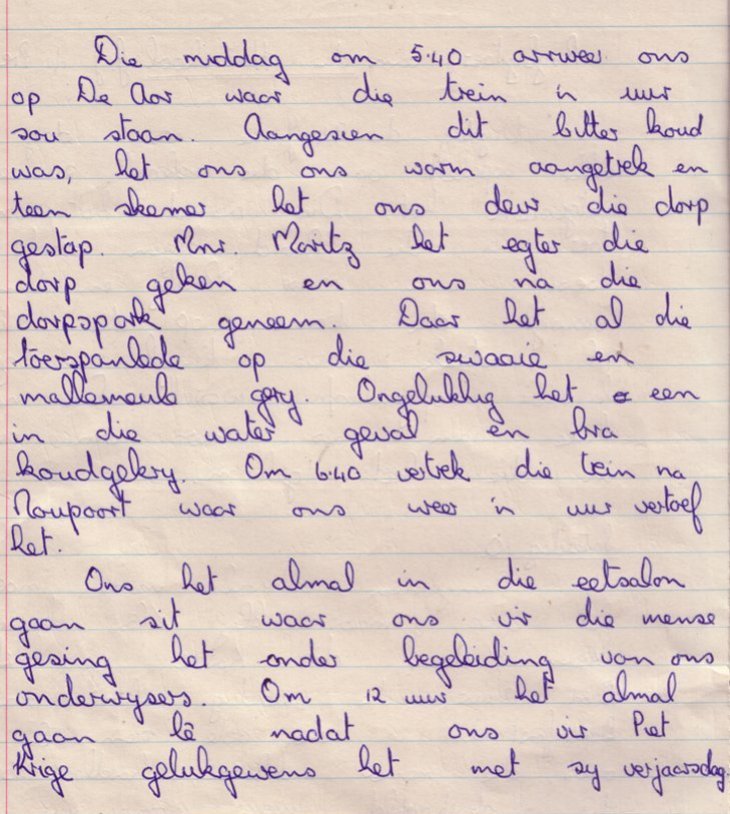 Die middag om 5.40 arriveer ons
op De Aar waar die trein 'n uur
sou staan. Aangesien dit bitter koud
was, het ons ons warm aangetrek en
teen skemer het ons deur die dorp
gestap. Mnr. Maritz het egter die
dorp geken en ons na die
dorpspark geneem. Daar het al die
toerspanlede op die swaaie en
mallemeule gery. Ongelukkig het een
in die water geval en bra
koudgekry. Om 6.40 vertrek die tein na
Noupoort waar ons weer 'n uur vertoef
het.
Ons het almal in die eetsalon
gaan sit waar ons vir die mense
gesing het onder begeleiding van ons
onderwysers. Om 12 uur het almal
gaan lê nadat ons vir Piet
Krige gelukgewens het met sy verjaarsdag.